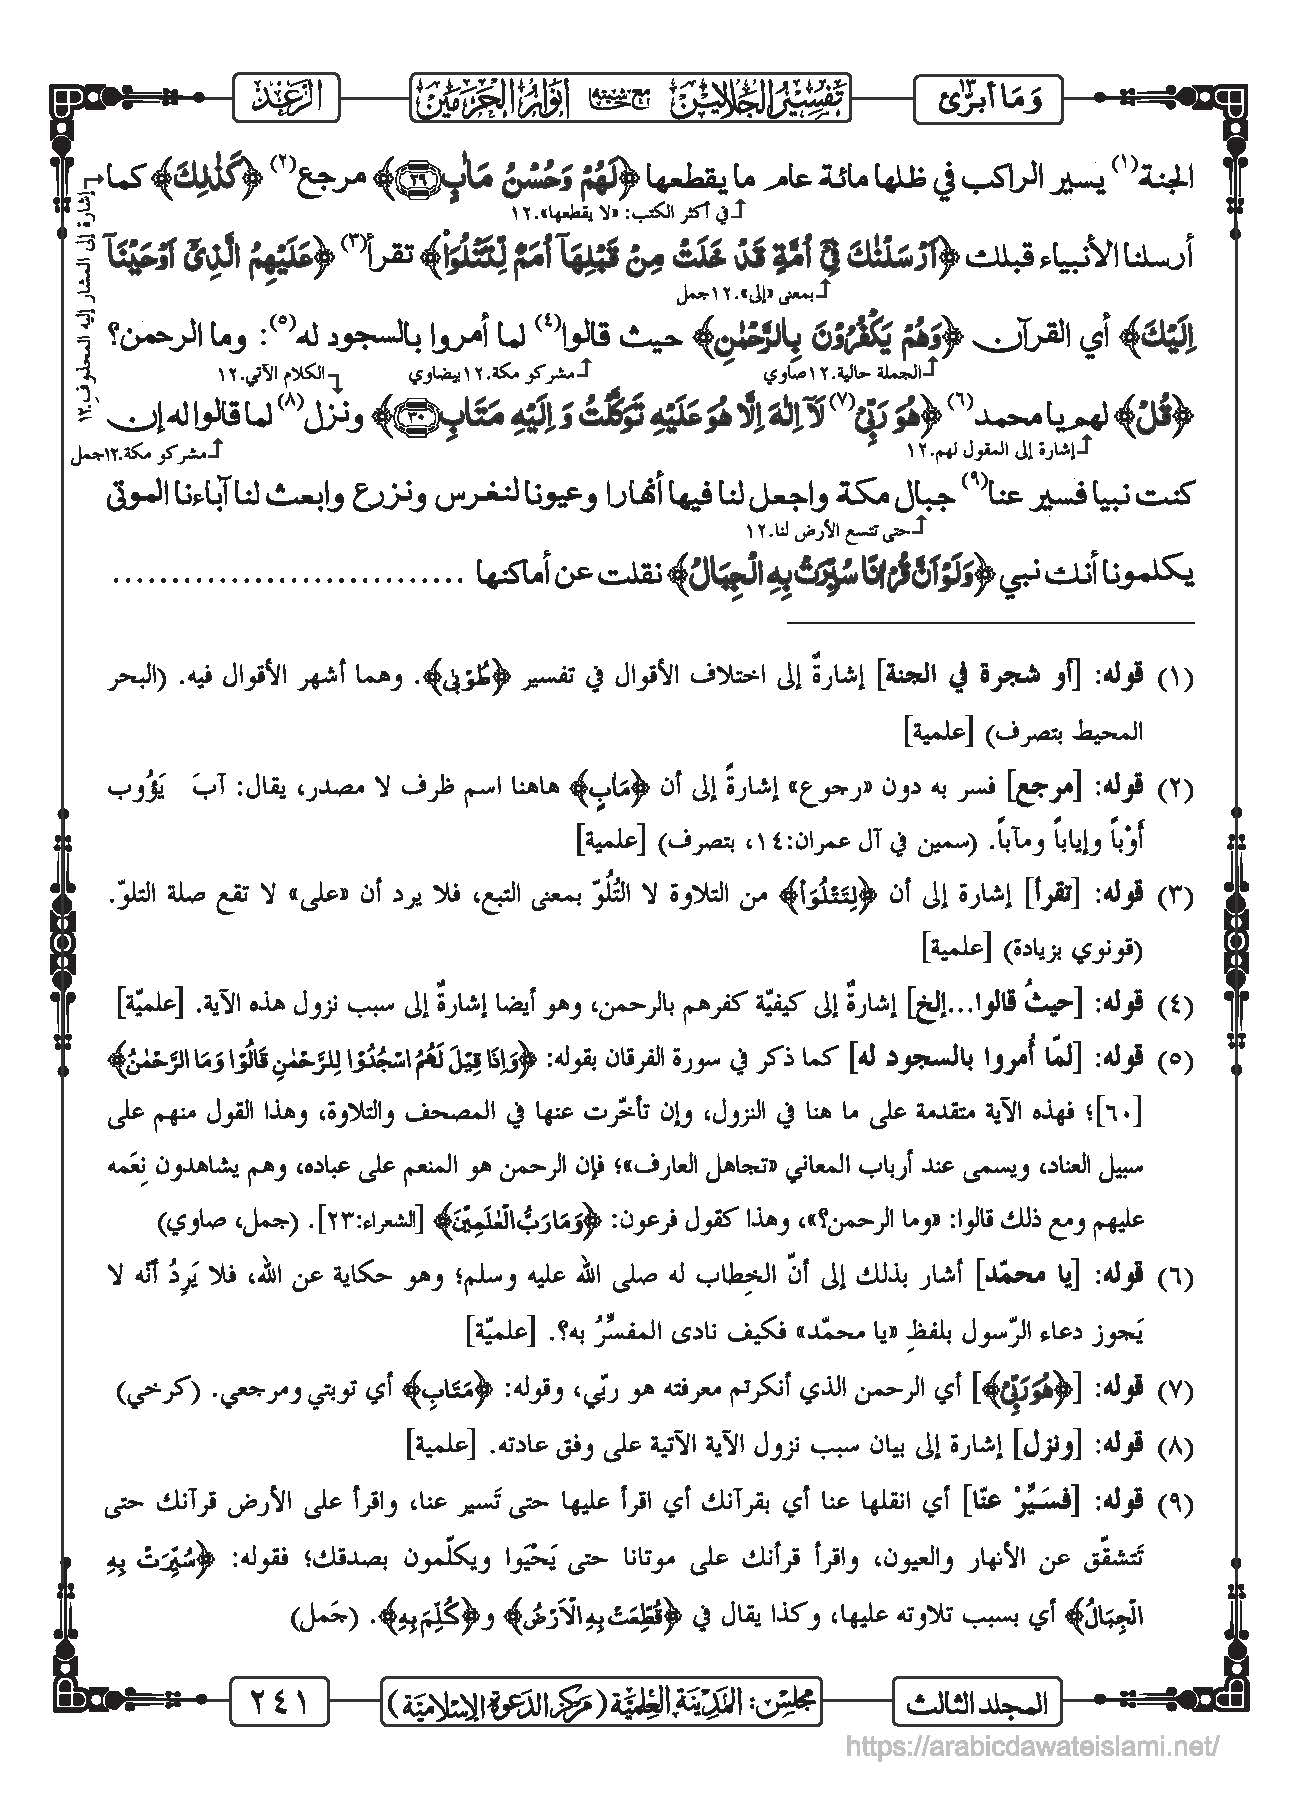 وَمَا أبرّئ ١٣
تفسير الجلالين مع حاشية أنوار الحرمين
الرعد
الجنة(١) يسير الراكب في ظلها مائة عام ما يقطعها ﴿لَهُمْ وَحُسْنُ مَاٰبٍ ﴿٢٩﴾﴾ مرجع(٢) ﴿كَذٰلِكَ﴾ كما
في أكثر الكتب: «لا يقطعها».١٢
إشارة إلى المشار إليه المحلوف.١٢
أرسلنا الأنبياء قبلك ﴿اَرْسَلْنٰكَ فِيْۤ اُمَّةٍ قَدْ خَلَتْ مِنْ قَبْلِهَاۤ اُمَمٌ لِّتَتْلُوَا۠﴾ تقرأ(٣) ﴿عَلَيْهِمُ الَّذِيْۤ اَوْحَيْنَاۤ
بمعنى «إلى».١٢جمل
اِلَيْكَ﴾ أي القرآن ﴿وَهُمْ يَكْفُرُوْنَ بِالرَّحْمٰنِ﴾ حيث قالوا(٤) لما أمروا بالسجود له(٥): وما الرحمن؟
الجملة حالية.١٢صاوي
مشركو مكة.١٢بيضاوي
الكلام الآتي.١٢
﴿قُلْ﴾ لهم يا محمد(٦) ﴿هُوَ رَبِّيْ(٧) لَاۤ اِلٰهَ اِلَّا هُوَ عَلَيْهِ تَوَكَّلْتُ وَ اِلَيْهِ مَتَابِ ﴿٣٠﴾﴾ ونزل(٨) لما قالوا له إن
إشارة إلى المقول لهم.١٢
مشركو مكة.١٢جمل
كنت نبيا فسير عنا(٩) جبال مكة واجعل لنا فيها أنهارا وعيونا لنغرس ونزرع وابعث لنا آباءنا الموتى
حتى تتسع الأرض لنا.١٢
يكلمونا أنك نبي ﴿وَلَوْ اَنَّ قُرْاٰنًا سُيِّرَتْ بِهِ الْجِبَالُ﴾ نقلت عن أماكنها ..............................
(١) قوله: [أو شجرة في الجنة] إشارةٌ إلى اختلاف الأقوال في تفسير ﴿طُوْبٰى﴾. وهما أشهر الأقوال فيه. (البحر
المحيط بتصرف) [علمية]
(٢) قوله: [مرجع] فسر به دون «رجوع» إشارةً إلى أن ﴿مَاٰبٍ﴾ هاهنا اسم ظرف لا مصدر، يقال: آبَ يَؤُوب
أَوْباً وإياباً ومآباً. (سمين في آل عمران:١٤، بتصرف) [علمية]
(٣) قوله: [تقرأ] إشارة إلى أن ﴿لِتَتْلُوَا۠﴾ من التلاوة لا التُلُوّ بمعنى التبع، فلا يرد أن «على» لا تقع صلة التلوّ.
(قونوي بزيادة) [علمية]
(٤) قوله: [حيثُ قالوا...إلخ] إشارةٌ إلى كيفيّة كفرهم بالرحمن، وهو أيضا إشارةٌ إلى سبب نزول هذه الآية. [علميّة]
(٥) قوله: [لمّا أُمروا بالسجود له] كما ذكر في سورة الفرقان بقوله: ﴿وَاِذَا قِيْلَ لَهُمُ اسْجُدُوْا لِلرَّحْمٰنِ قَالُوْا وَمَا الرَّحْمٰنُ﴾
[٦٠]؛ فهذه الآية متقدمة على ما هنا في النزول، وإن تأخّرت عنها في المصحف والتلاوة، وهذا القول منهم على
سبيل العناد، ويسمى عند أرباب المعاني «تجاهل العارف»؛ فإن الرحمن هو المنعم على عباده، وهم يشاهدون نِعَمه
عليهم ومع ذلك قالوا: «وما الرحمن؟»، وهذا كقول فرعون: ﴿وَمَا رَبُّ الْعٰلَمِيْنَ﴾ [الشعراء:٢٣]. (جمل، صاوي)
(٦) قوله: [يا محمّد] أشار بذلك إلى أنّ الخِطاب له صلى الله عليه وسلم؛ وهو حكاية عن الله، فلا يَرِدُ أنّه لا
يَجوز دعاء الرّسول بلفظِ «يا محمّد» فكيف نادى المفسِّرُ به؟. [علميّة]
(٧) قوله: [﴿هُوَ رَبِّيْ﴾] أي الرحمن الذي أنكرتم معرفته هو ربّي، وقوله: ﴿مَتَابِ﴾ أي توبتي ومرجعي. (كرخي)
(٨) قوله: [ونزل] إشارة إلى بيان سبب نزول الآية الآتية على وفق عادته. [علمية]
(٩) قوله: [فسَيِّرْ عنّا] أي انقلها عنا أي بقرآنك أي اقرأ عليها حتى تَسير عنا، واقرأ على الأرض قرآنك حتى
تَتشقّق عن الأنهار والعيون، واقرأ قرأنك على موتانا حتى يَحْيَوا ويكلّمون بصدقك؛ فقوله: ﴿سُيِّرَتْ بِهِ
الْجِبَالُ﴾ أي بسبب تلاوته عليها، وكذا يقال في ﴿قُطِّعَتْ بِهِ الْاَرْضُ﴾ و﴿كُلِّمَ بِهِ﴾. (جَمل)
المجلد الثالث
مجلس: المدينة العلمية (مركز الدعوة الإسلامية)
٢٤١
https://arabicdawateislami.net/